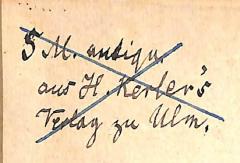 5 M. antiqu.
aus H. Kerler's
Verlag zu Ulm.